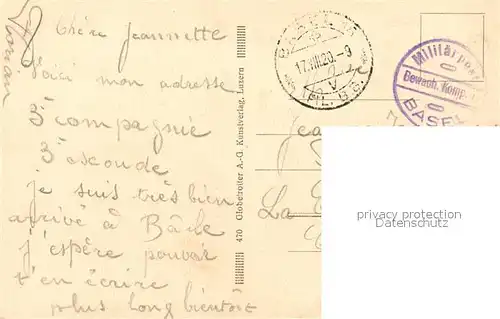 Chère Jeannette
Voici mon adresse
3e compagnie
3e escoude
je suis très bien
arrivé à Bâle
j'espère pouvoir
t'en écrire
plus long bientôt
470 Globetrotter A.-G. Kunstverlag, Luzern
17.VIII.20.-9
V
Militärpost
Bewach. Komp.
BASEL
Jea
La
privacy protection
Datenschutz